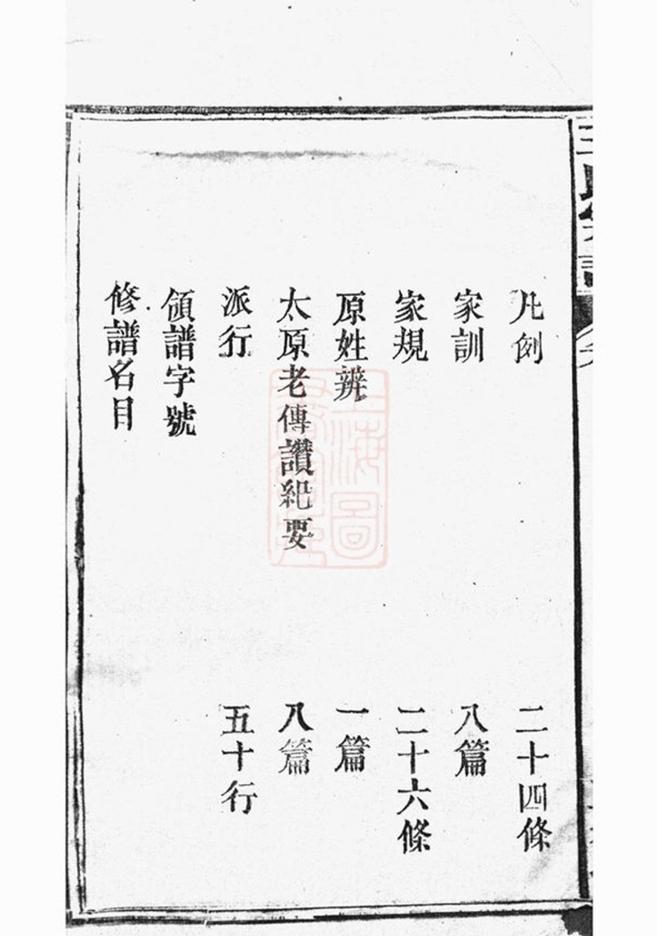 凡例 二十四條
家訓 八篇
家規 二十六條
原姓辨 一篇
太原老傳讚紀要 八篇
派行 五十行
領譜字號
修譜名目
上海圖